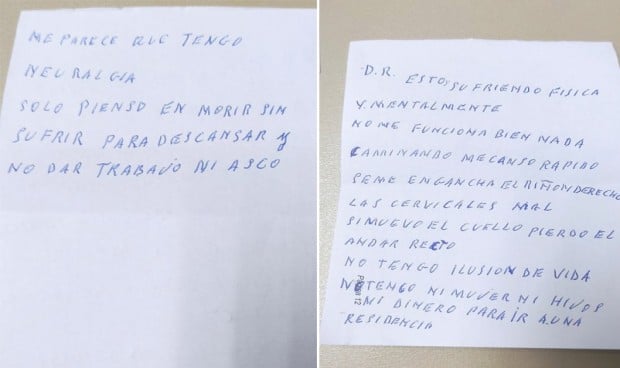 ME PARECE QUE TENGO
NEURALGIA
SOLO PIENSO EN MORIR SIN
SUFRIR PARA DESCANSAR Y
NO DAR TRABAJO NI ASCO
D.R. ESTOY SUFRIENDO FISICA
Y MENTALMENTE
NO ME FUNCIONA BIEN NADA
CAMINANDO ME CANSO RAPIDO
SEME ENGANCHA EL RIÑON DERECHO
LAS CERVICALES MAL
SI MUEVO EL CUELLO PIERDO EL
ANDAR RECTO
NO TENGO ILUSION DE VIDA
NO TENGO NI MUJER NI HIJOS
NI DINERO PARA IR A UNA
RESIDENCIA